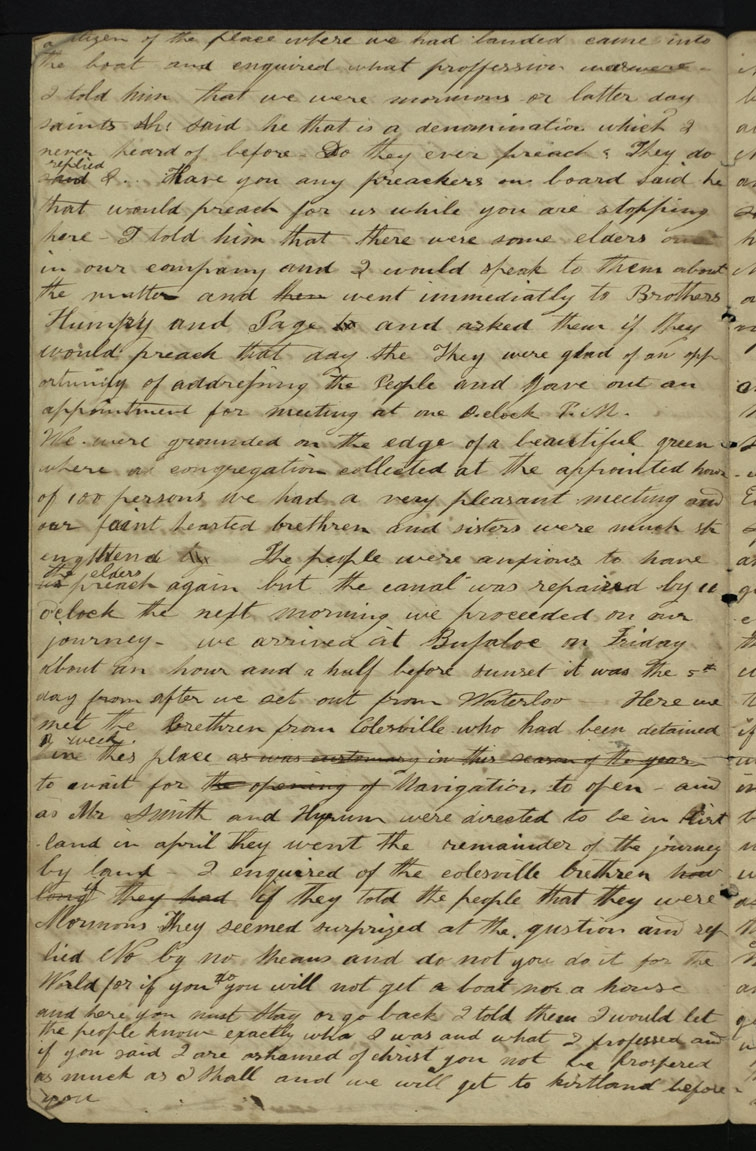 a citizen of the place where we had landed came into
the boat and enquired what proffession we were
I told him that we were mormons or latter day
saints Ah! said he that is a denomination which I
never heard of before Do they ever preach? They do
replied
said I. Have you any preachers on board said he
that would preach for us while you are stopping
here - I told him that there were some elders
in our company and I would speak to them about
the matter and then went immediatly to Brothers
Humpry and Page to and asked them if they
would preach that day the They were glad of an opp
ortunity of addressing the People and Gave out an
appointment for meeting at one Oclock P.M.
We were grounded on the edge of a beautiful green
where a congregation collected at the appointed hour
of 100 persons we had a very pleasant meeting and
our faint hearted brethren and sisters were much str
engthend The people were anxious to have
the elders
us preach again but the canal was repaired by 11
oclock the next morning we proceeded on our
journey - we arrived at Bufaloe on Friday
about an hour and a half before sunset it was the 5th
day from after we set out from Waterloo - Here we
met the brethren from Colesville who had been detained
a week
in this place as was customary in this season of the year
to await for the opening of Navigation to open - and
as Mr Smith and Hyrum were directed to be in Kirt
land in april they went the remainder of the journey
by land - I enquired of the colesville brethren how
long if they had if they told the people that they were
Mormons They seemed surprized at the qustion and rep
lied No by no means and do not you do it for the
World for if you do you will not get a boat nor a house
and here you must stay or go back I told them I would let
the people know exactly who I was and what I professed and
if you said I are ashamed of christ you not be prospered
as much as I shall and we will get to kirtland before
you